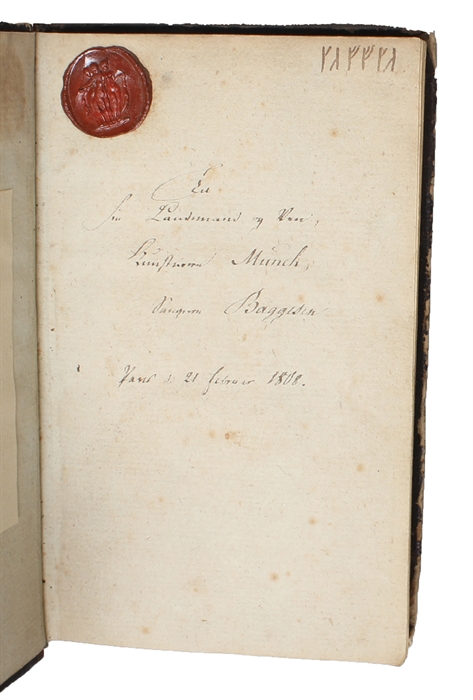 Til
sin Landsmand og Ven,
Kunstneren Münch,
Sangeren Baggesen
Paris d. 21 Februar 1808.